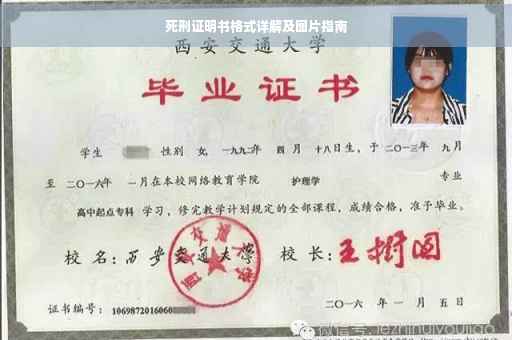 死刑证明书格式详解及图片指南
西安交通大学
毕业证书
学生 性别 女,一九九二年 四 月 十八日生,于 二〇一三年 九月
至 二〇一六年 一月在本校网络教育学院 护理学 专业
高中起点专科 学习,修完教学计划规定的全部课程,成绩合格,准予毕业。
校 名:西安交通大学 校 长:王树国
西安交通大学
证书编号:1069872016060
二〇一六 年 一 月 五 日
微信号:jezhihuiyoujiao